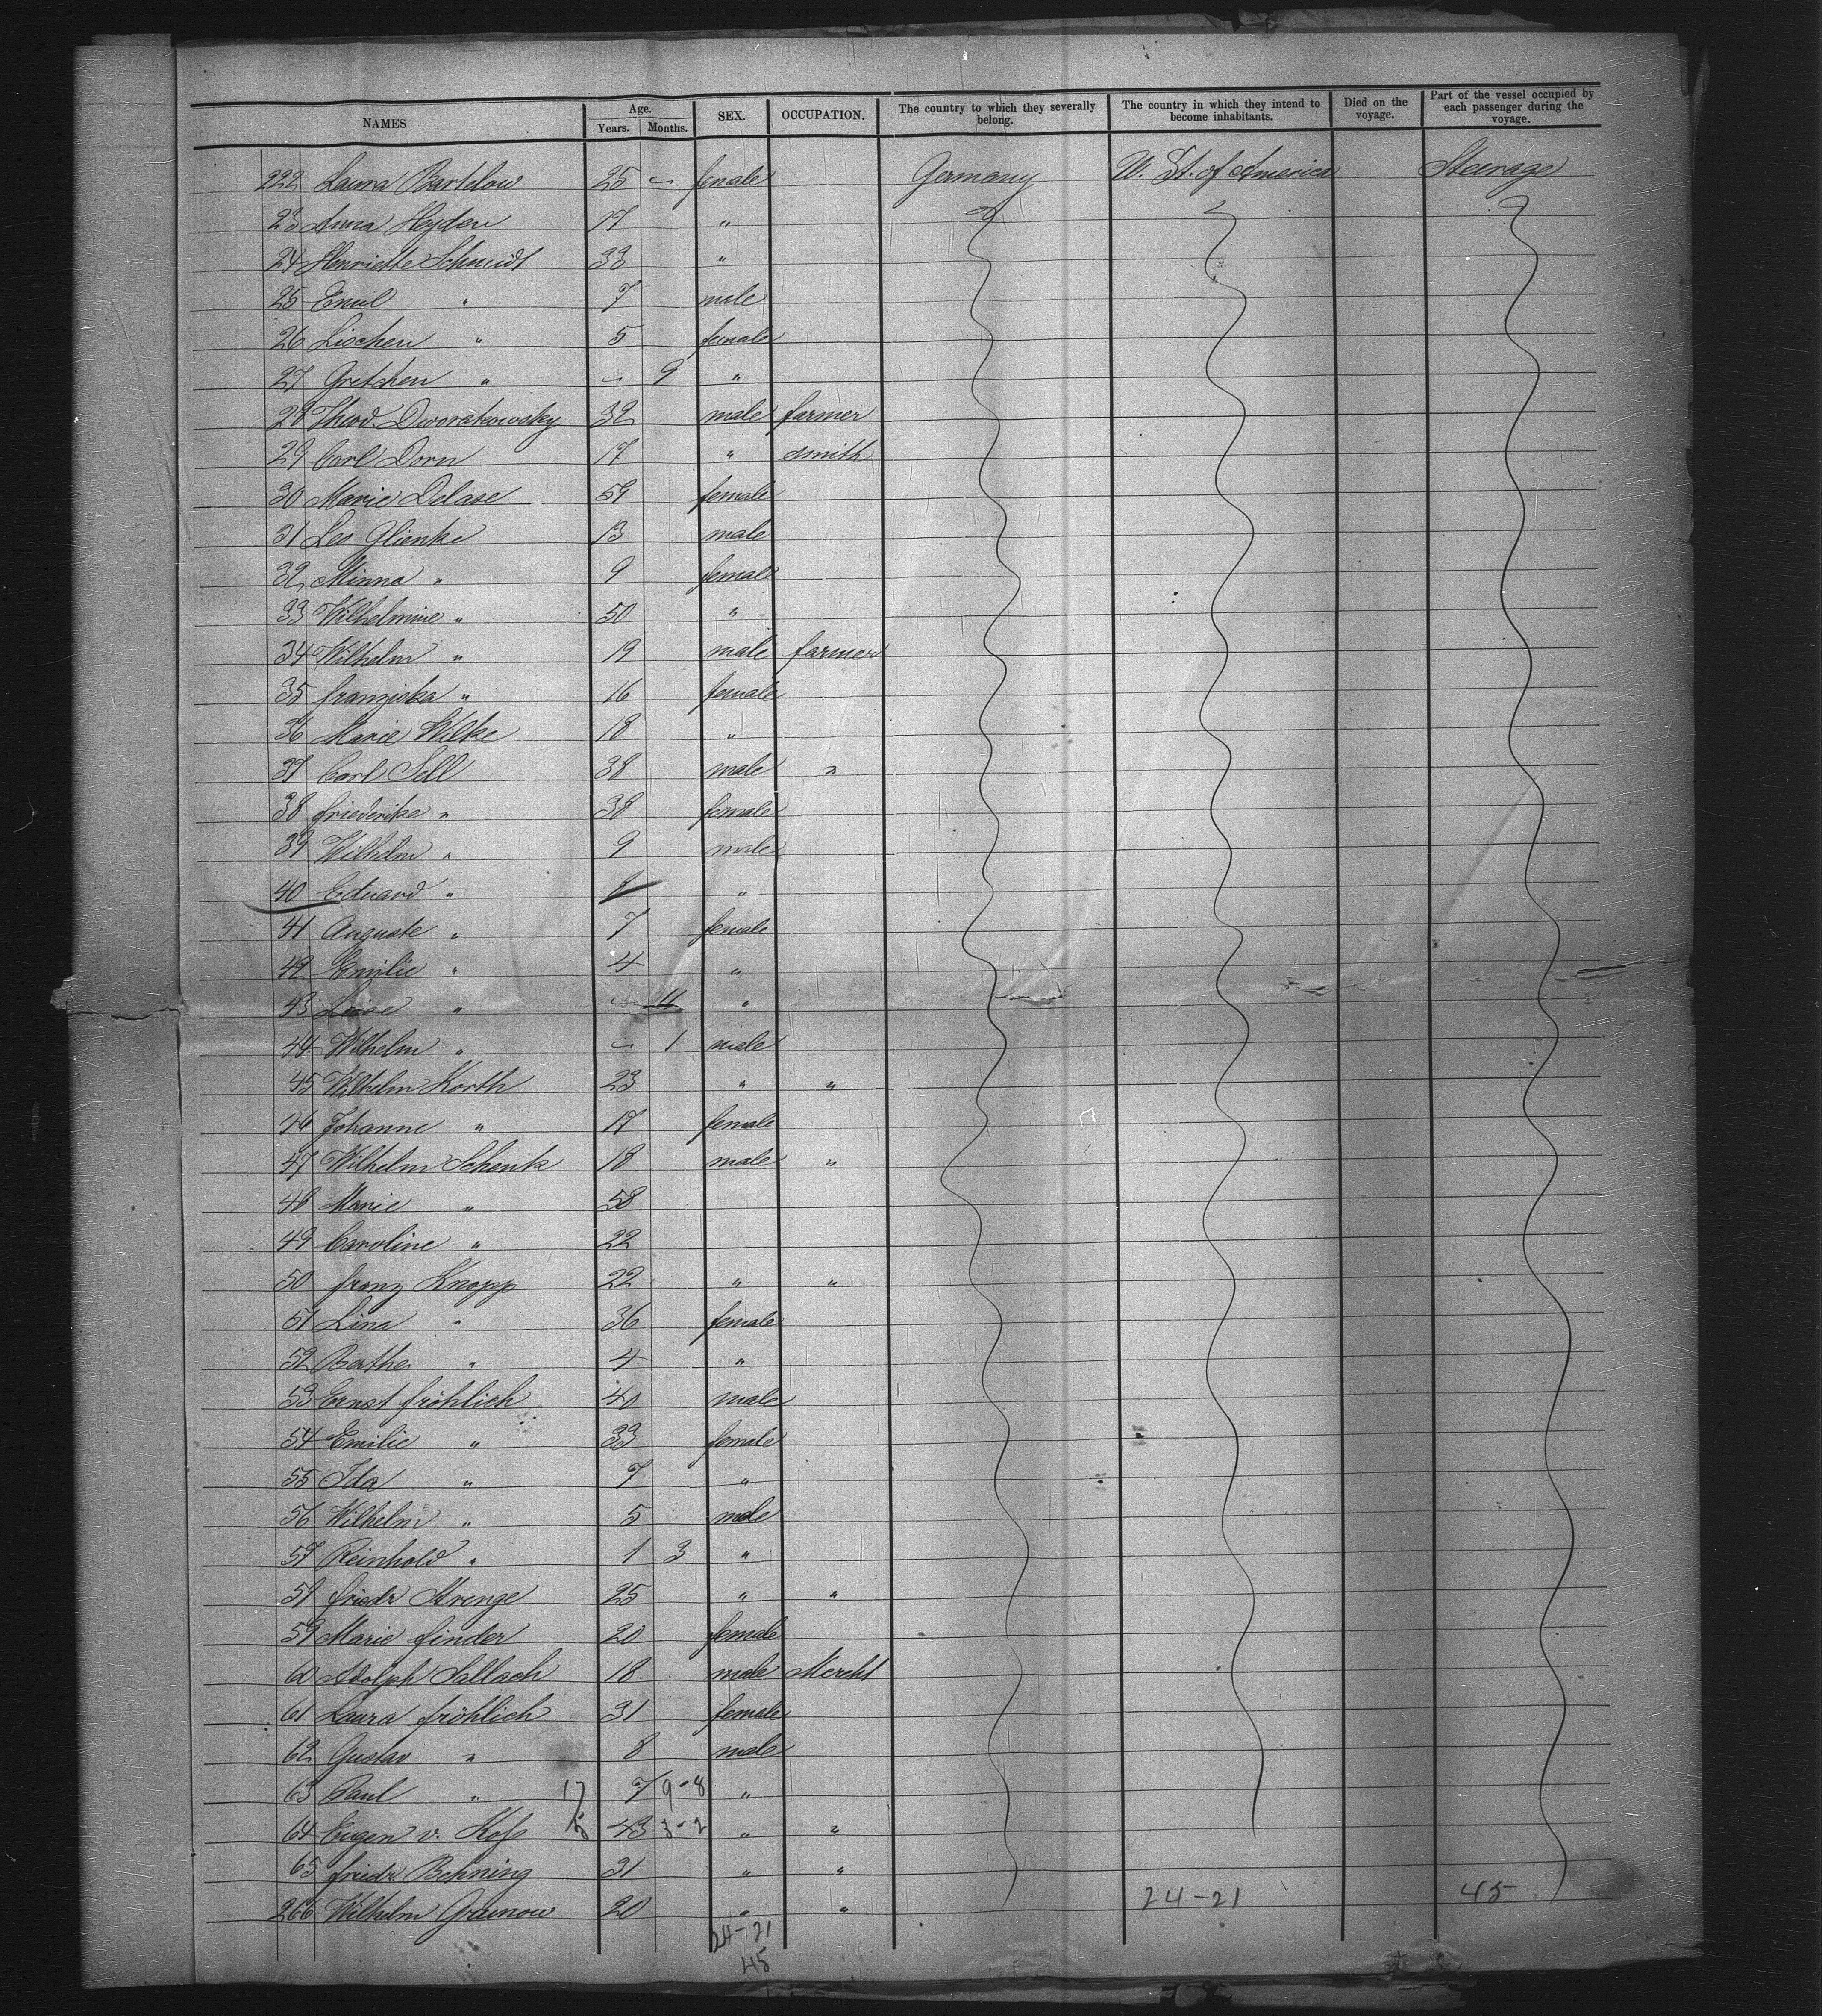 NAMES Age. Years. Months. SEX. OCCUPATION. The country to which they severally belong. The country in which they intend to become inhabitants. Died on the voyage. Part of the vessel occupied by each passenger during the voyage.
222 Laura Bartelow 25 - female Germany U. St. of America Steerage
23 Anna Heyden 17 "
24 Henriette Schmidt 33 "
25 Emil " 7 male
26 Lischen " 5 female
27 Gretchen " - 9 "
28 Theod. Dworakowsky 32 male farmer
29 Carl Dorn 17 " smith
30 Marie Delase 59 female
31 Leo Glienke 13 male
32 Minna " 9 female
33 Wilhelmine " 50 "
34 Wilhelm " 19 male farmer
35 franziska " 16 female
36 Marie Wilke 18 "
37 Carl Sell 38 male "
38 friederike " 38 female
39 Wilhelm " 9 male
40 Eduard " 8 "
41 Auguste " 7 female
42 Emilie " 4 "
43 Luise " - 11 "
44 Wilhelm " - 1 male
45 Wilhelm Korth 23 " "
46 Johanne " 17 female
47 Wilhelm Schenk 18 male "
48 Marie " 58
49 Caroline " 22
50 franz Knopp 22 " "
51 Lina " 36 female
52 Berthe " 4 "
53 Ernst fröhlich 40 male
54 Emilie " 33 female
55 Ida " 7 "
56 Wilhelm " 5 male
57 Reinhold " 1 3 "
58 friedr Strenge 25 " "
59 Marie finder 20 female
60 Adolph Sallach 18 male Mercht
61 Laura fröhlich 31 female
62 Gustav " 8 male
63 Paul " 17 7 9-8 "
64 Eugen v. Koss 5 43 3-2 " "
65 friedr Behning 31 " "
266 Wilhelm Gramow 20 " " 24-21 45
24-21
45